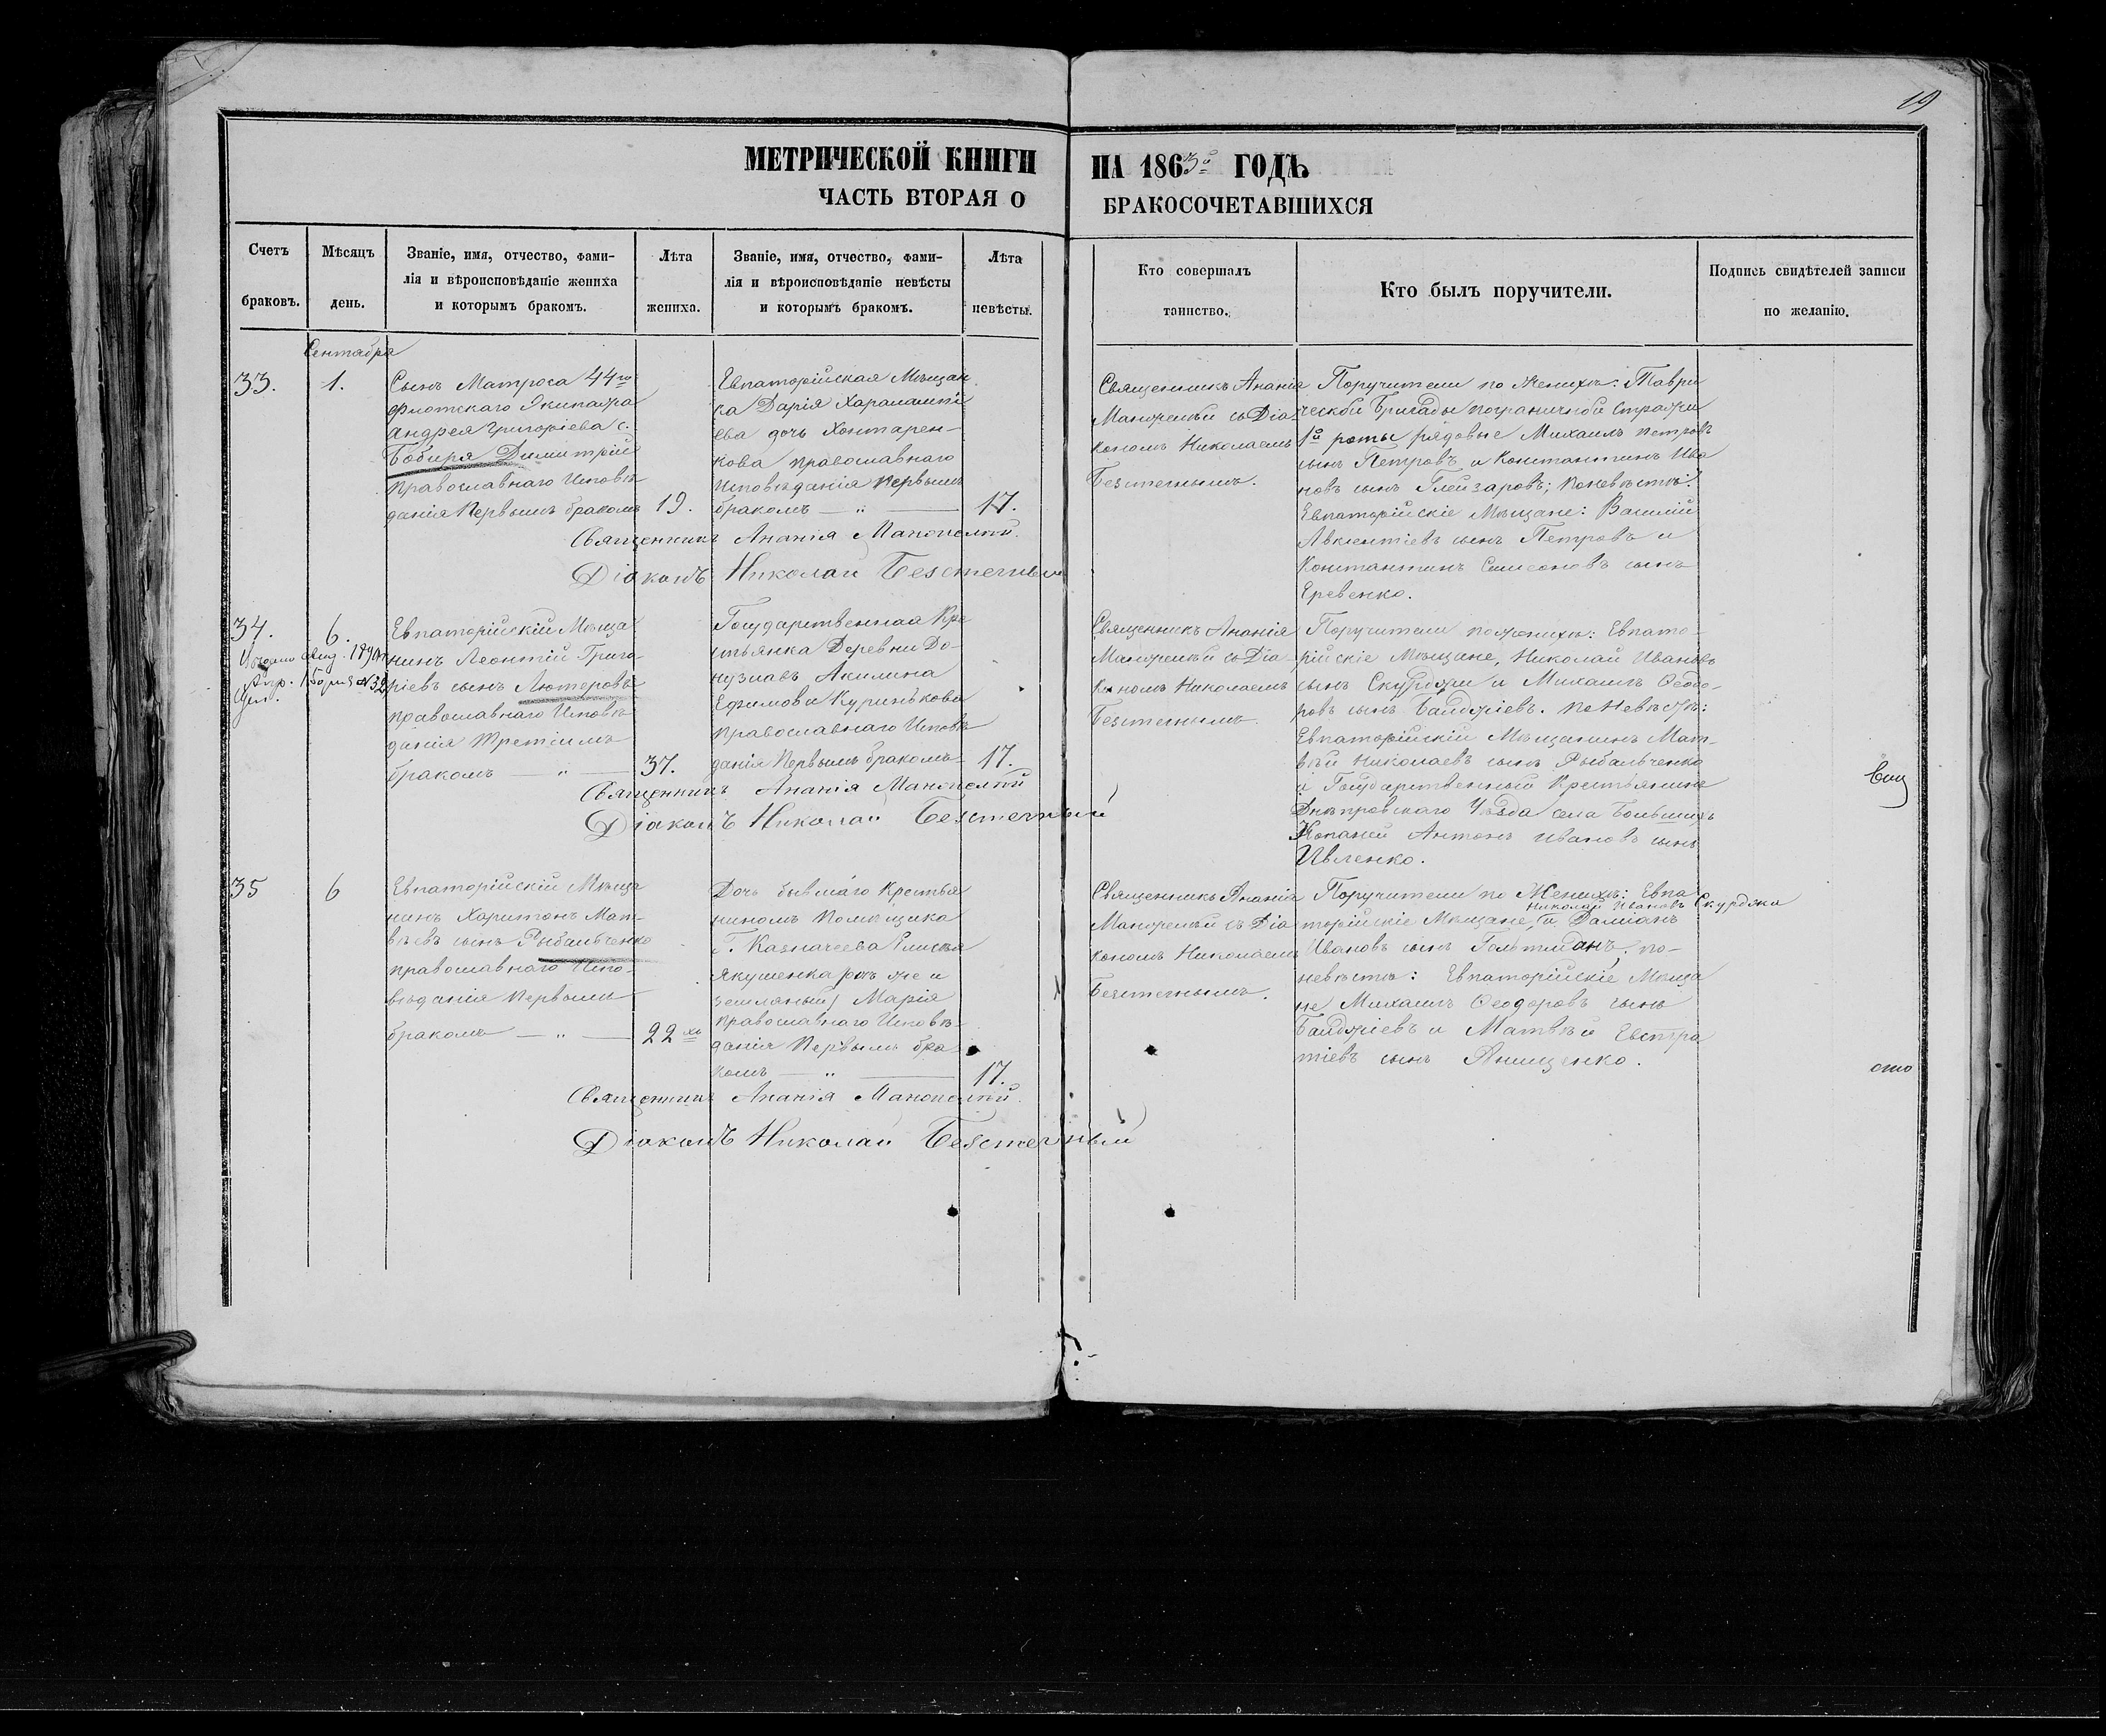 19
МЕТРИЧЕСКОЙ КНИГИ НА 1863й ГОДЪ
ЧАСТЬ ВТОРАЯ О БРАКОСОЧЕТАВШИХСЯ
Счетъ браковъ.
Мѣсяцъ день.
Званіе, имя, отчество, фами-
лія и вѣроисповѣданіе жениха
и которымъ бракомъ.
Лѣта жениха.
Званіе, имя, отчество, фами-
лія и вѣроисповѣданіе невѣсты
и которымъ бракомъ.
Лѣта невѣсты.
Кто совершалъ
таинство.
Кто былъ поручители.
Подпись свидѣтелей записи
по желанію.
Сентября
33.
1.
Сынъ Матроса 44го
Флотскаго Экипажа
Андрея Григоріева с.
Бобиря Димитрій
Православнаго Исповѣ-
данія Первымъ бракомъ
19.
Евпаторійская Мѣщан
ка Дарія Харалампі
ева дочь Хонтарен-
кова православнаго
Исповѣданія Первымъ
бракомъ — " —
17.
Священникъ Ананія
съ Діа
кономъ Николаемъ
Безстечнымъ.
Поручители по Женихѣ: Таври
ческой Бригады пограничной Стражи
1й роты рядовые Михаилъ Петровъ
сынъ Петровъ и Константинъ Ива
новъ сынъ Глейзаровъ; По невѣстѣ:
Евпаторійскіе Мѣщане: Василій
Авксентіевъ сынъ Петровъ и
Константинъ Симеоновъ сынъ
Еревенко.
Священникъ Ананія
Діаконъ Николай
34.
6.
Евпаторійскій Мѣща
нинъ Леонтій Григо-
ріевъ сынъ Лютеровъ
православнаго Исповѣ
данія Третіимъ
бракомъ — " —
37.
Государственная Кре
стьянка Деревни До-
нузлавъ Акилина
Ефимова Куринькова
православнаго Исповѣ
данія Первымъ бракомъ
17.
Священникъ Ананія
съ Діа
кономъ Николаемъ
Безстечнымъ.
Поручители по женихѣ: Евпато-
рійскіе Мѣщане, Николай Ивановъ
сынъ Скурджи и Михаилъ Ѳеодо-
ровъ сынъ Байджіевъ. По Невѣстѣ:
Евпаторійскій Мѣщанинъ Мат-
вѣй Николаевъ сынъ Рыбальченко
и Государственный Крестьянинъ
Днѣпровскаго Уѣзда села Большихъ
Копаней Антонъ Ивановъ сынъ
Ивленко.
Священникъ Ананія
Діаконъ Николай
35
6
Евпаторійскій Мѣща
нинъ Харитонъ Мат-
вѣевъ сынъ Рыбальченко
православнаго Испо-
вѣданія Первымъ
бракомъ — " —
22хъ
Дочь бывшаго Крестья
ниномъ Помѣщика
Г. Казначеева
Якушенка
Марія
православнаго Исповѣ-
данія Первымъ бра
комъ — " —
17.
Священникъ Ананія
съ Діа
кономъ Николаемъ
Безстечнымъ.
Поручители по Женихѣ: Евпа
Николай Ивановъ Скурджи
торійскіе Мѣщане, и Даміанъ
Ивановъ сынъ по-
невѣстѣ: Евпаторійскіе Мѣща
не Михаилъ Ѳеодоровъ сынъ
Байджіевъ и Матвѣй Евстра
тіевъ сынъ Анищенко.
Священникъ Ананія
Діаконъ Николай